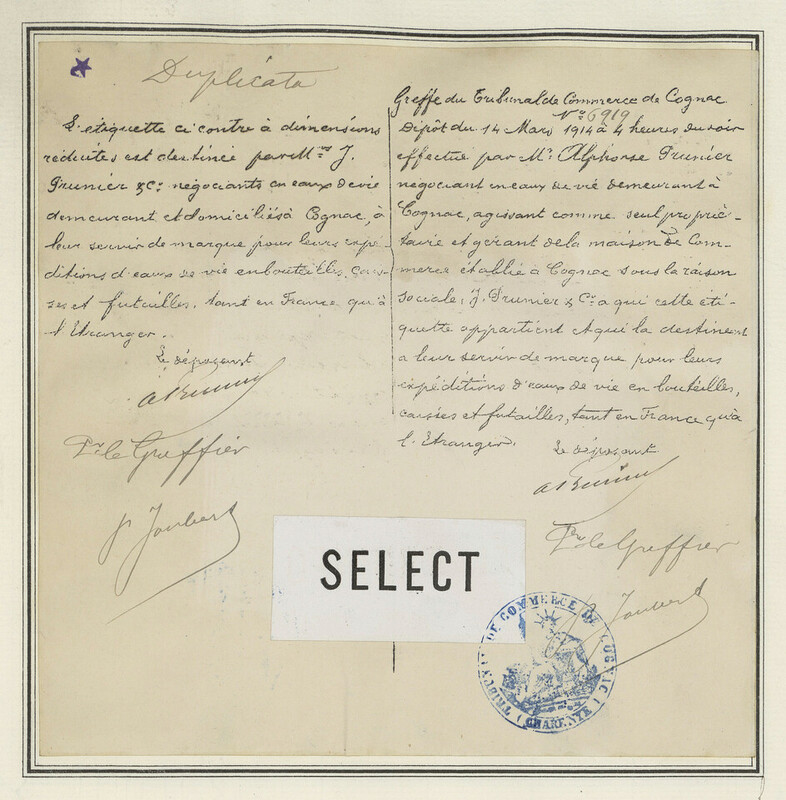 Duplicata
L'étiquette ci contre à dimensions
réduites est destinée par Mrs J.
Prunier & Co. négociants en eaux de vie
demeurant et domiciliés à Cognac, à
leur servir de marque pour leurs expé-
ditions d'eaux de vie en bouteilles, cais-
ses et futailles, tant en France qu'à
l'Etranger.
Le déposant
A Prunier
Pr le Greffier
P Joubert
Greffe du Tribunal de Commerce de Cognac
No 6919
Dépôt du 14 Mars 1914 à 4 heures du soir
effectué par Mr Alphonse Prunier
négociant en eaux de vie demeurant à
Cognac, agissant comme seul proprié-
taire et gérant de la maison de Com-
merce établie à Cognac sous la raison
sociale: J. Prunier & Co a qui cette éti-
quette appartient et qui la destinent
a leur servir de marque pour leurs
expéditions d'eaux de vie en bouteilles,
caisses et futailles, tant en France qu'à
l'Etranger.
Le déposant
A Prunier
Pr le Greffier
P Joubert
SELECT
TRIBUNAL DE COMMERCE DE COGNAC
(CHARENTE)